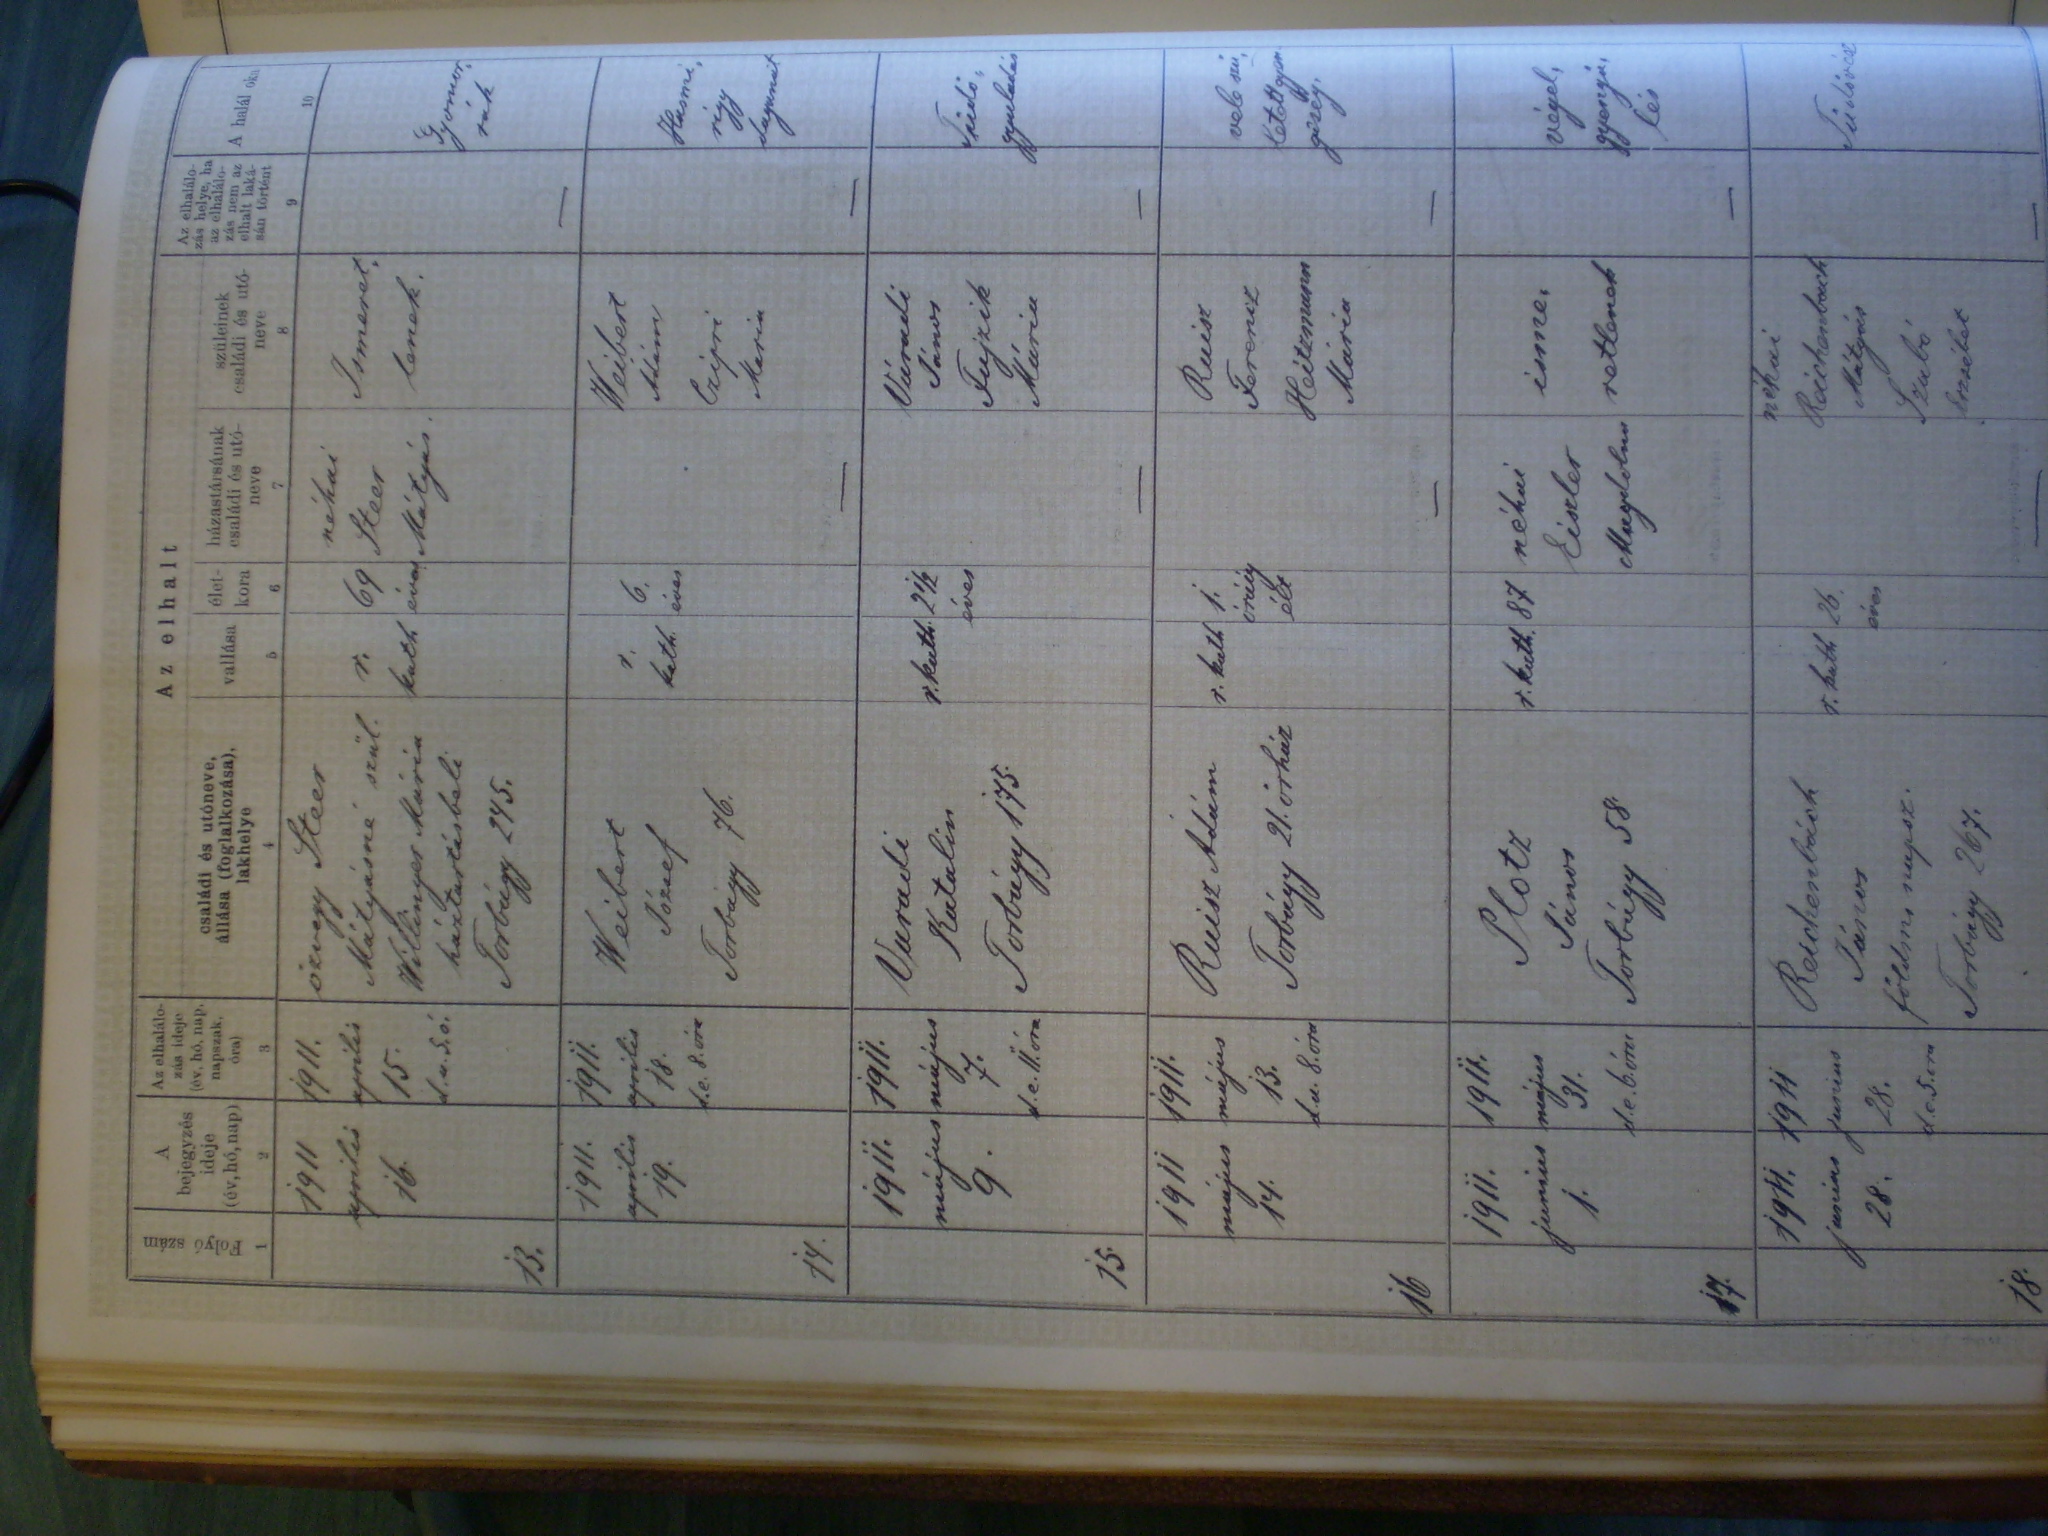 Az elhalt
Folyó
szám
A
bejegyzés
ideje
(év, hó, nap)
Az elhalálo-
zás ideje
(év, hó, nap,
napszak,
óra)
családi és utóneve,
állása (foglalkozása),
lakhelye
vallása
élet-
kora
házastársának
családi és utó-
neve
szüleinek
családi és utó-
neve
Az elhalálo-
zás helye, ha
az elhalálo-
zás nem az
elhalt laká-
sán történt
A halál oka
1
2
3
4
5
6
7
8
9
10
13.
1911
április
16.
1911.
április
15.
d.u.5.ó.
özvegy Steer
Mátyásné szül.
Mária
háztartásbeli
Torbágy 245.
r.
kath
69
éves
néhai
Steer
Mátyás.
Ismeret,
lenek.
—
Gyomor,
rák
14.
1911.
április
19.
1911.
április
18.
d.e.8.óra
Weibert
József
Torbágy 76.
r.
kath.
6.
éves
—
Weibert
Ádám
Czipri
Maria
—
15.
1911.
május
9.
1911.
május
7.
d.e.11.óra
Varadi
Katalin
Torbágy 175.
r.kath.
2½
éves
—
Váradi
János
Fujzik
Mária
—
Tüdő,
gyuladás
16
1911
május
14.
1911.
május
13.
d.u.8.óra
Ruisz Ádám
Torbágy 21.őrház
r.kath
1.
óráig
élt
—
Ruisz
Ferencz
Heitzmann
Mária
—
vele szü,
letett gyen
geség.
17.
1911.
junius
1.
1911.
május
31.
d.e.6.óra
Plotz
János
Torbágy 58.
r.kath.
87
néhai
Eiszler
Magdolna
isme,
retlenek
—
végel,
gyengü,
lés
18.
1911.
junius
28.
1911
junius
28.
d.e.5.óra
Reichenbách
János
földm. napsz.
Torbágy 267.
r.kath
26.
éves
—
néhai
Reichenbach
Mátyás
Szabó
Erzsébet
—
Tüdővész